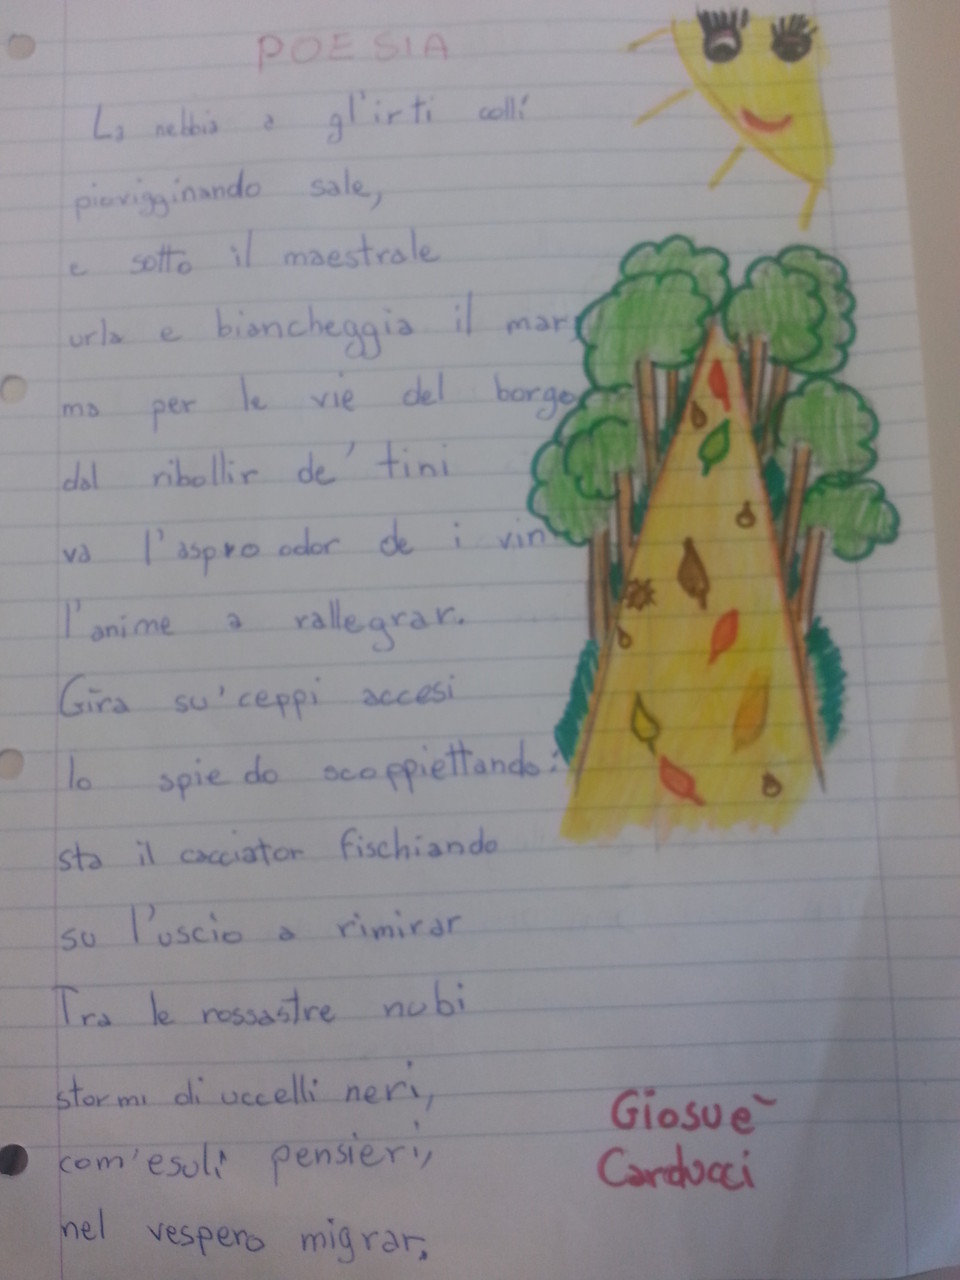 POESIA
La nebbia a gl'irti colli
piovigginando sale,
e sotto il maestrale
urla e biancheggia il mar;
ma per le vie del borgo
dal ribollir de' tini
va l'aspro odor de i vin
l'anime a rallegrar.
Gira su' ceppi accesi
lo spiedo scoppiettando:
sta il cacciator fischiando
su l'uscio a rimirar
Tra le rossastre nubi
stormi di uccelli neri,
com'esuli pensieri,
nel vespero migrar.
Giosuè
Carducci